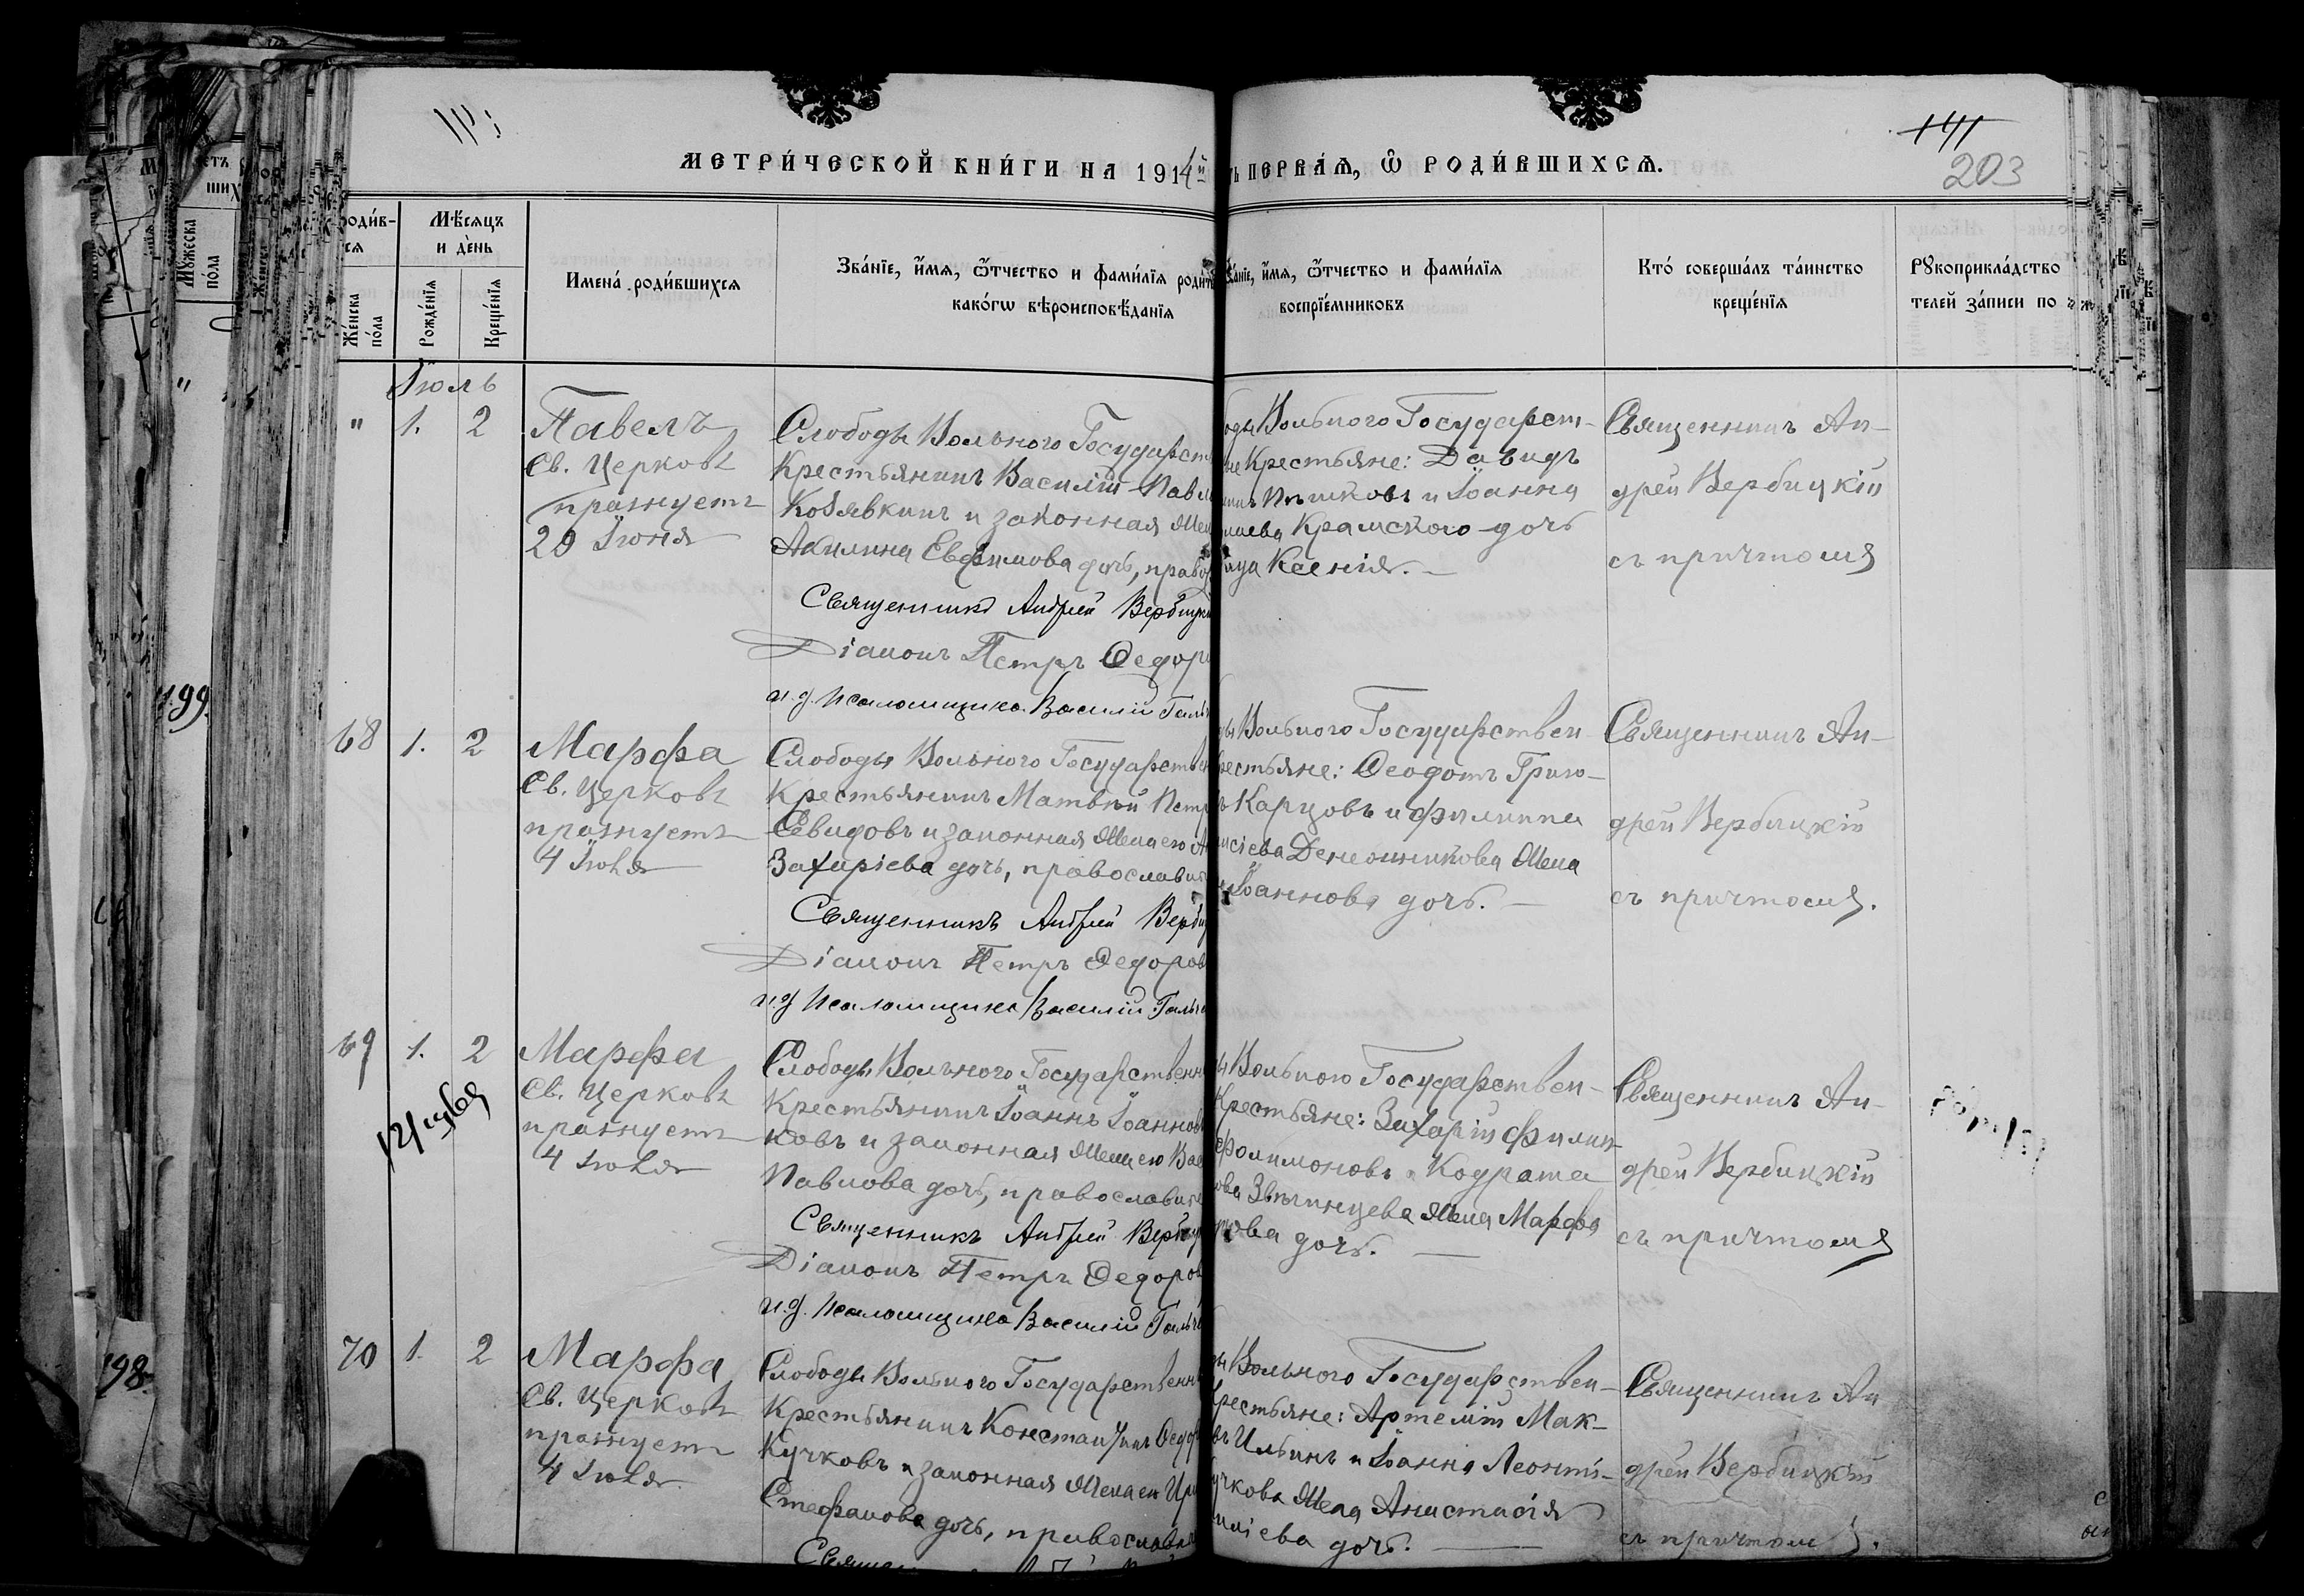 141
203
МЕТРИ́ЧЕСКОЙ КНИ́ГИ НА 1914 й
ПЕРВА́Ѧ, Ѽ РОДИ́ВШИХСѦ.
роди́в-
сѧ
Мѣ́сѧцъ
и де́нь
Же́нска
по́ла
Рожде́нїѧ
Креще́нїѧ
Имена́ роди́вшихсѧ
Зва́нїе, и҆́мѧ, ѻ҆́тчество и фами́лїѧ роди́
како́гѡ вѣроисповѣ́данїѧ
Зва́нїе, и҆́мѧ, ѻ҆́тчество и фами́лїѧ
воспрїе́мниковъ
Кто́ соверша́лъ та́инство
креще́нїѧ
Рꙋкоприкла́дство
телей за́писи по
Іюль
" 1. 2
Павелъ
Св. Церковь
празнуетъ
29 Іюня
Слободы Вольного Государст
Крестьянинъ Василій Павл
Козявкинъ и законная Же
Акилина Евфимова дочь, право
Священникъ Андрей Вербицкі
Діаконъ Петръ Ѳедор
и. д. Псаломщика Василій Галь
Вольного Государст-
Крестьяне: Давидъ
Пѣшковъ и Іоанна
Крамского дочь
Ксенія. —
Священникъ Ан-
дрей Вербицкій
съ причтомъ
68 1. 2
Марфа
Св. Церковь
празнуетъ
4 Іюля
Слободы Вольного Государствен
Крестьянинъ Матвѣй Петр
Севидовъ и законная Жена его
Захаріева дочь, православн
Священникъ Андрей Верби
Діаконъ Петръ Ѳедоров
и. д. Псаломщика Василій Галь
Вольного Государствен
рестьяне: Ѳеодотъ Григо-
Карцовъ и Филиппа
Денеошникова Жена
Іоаннова дочь. —
Священникъ Ан-
дрей Вербицкій
съ причтомъ.
69 1. 2
Марфа
Св. Церковь
празнуетъ
4 Іюля
Слободы Вольного Государственн
Крестьянинъ Іоаннъ Іоаннов
ковъ и законная Жена его Вас
Павлова дочь, православн
Священникъ Андрей Верби
Діаконъ Петръ Ѳедоров
и. д. Псаломщика Василій Галь
Вольного Государствен-
Крестьяне: Захарій Филип-
Филимоновъ и Кодрата
Звѣгинцева Жена Марфа
ова дочь. —
Священникъ Ан-
дрей Вербицкій
съ причтомъ
70 1. 2
Марфа
Св. Церковь
празнуетъ
4 Іюля
Слободы Вольного Государственн
Крестьянинъ Константинъ Ѳедор
Кучковъ и законная Жена его Ири
Стефанова дочь, православн
Вольного Государствен-
рестьяне: Артемій Мак-
Ильинъ и Іоанна Леонті-
учкова Жена Анастасія
ліева дочь. —
Священникъ Ан
дрей Вербицкій
съ причтомъ.
199.
198.